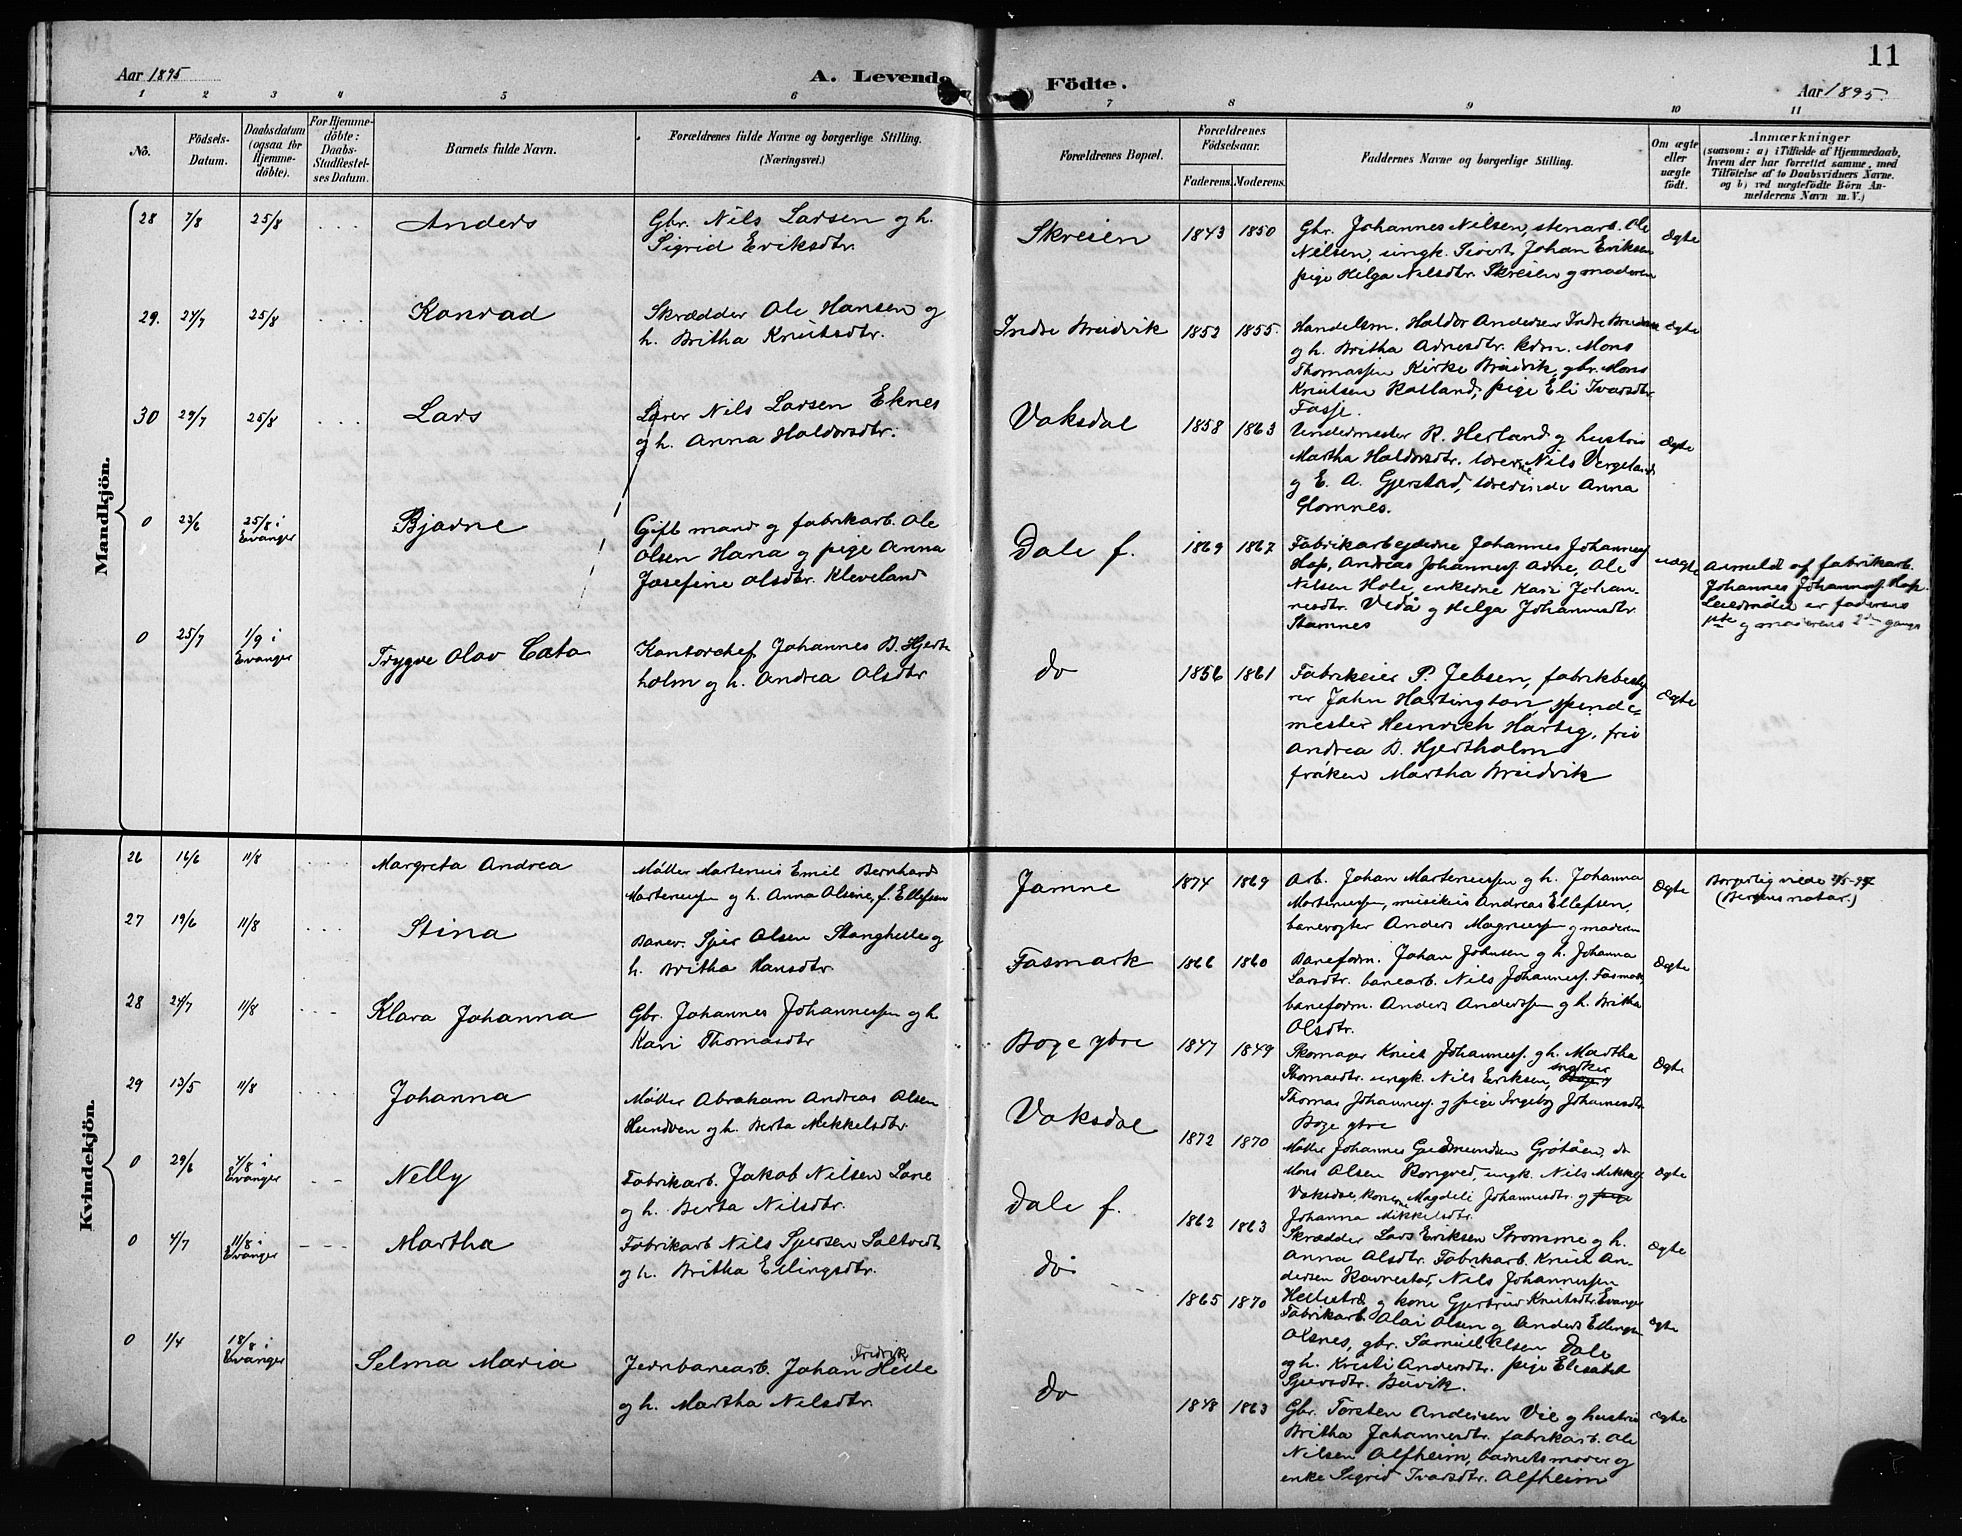 11
Aar 1895
A. Levende Födte.
Aar 1895.
1 2 3 4 5 6 7 8 9 10 11
No.
Födsels-Datum.
Daabsdatum (ogsaa for Hjemme-döbte).
For Hjemme-döbte: Daabs-Stadfæstel-ses Datum.
Barnets fulde Navn.
Forældrenes fulde Navne og borgerlige Stilling.
(Næringsvei.)
Forældrenes Bopæl.
Forældrenes Födselsaar.
Faderens. Moderens.
Faddernes Navne og borgerlige Stilling.
Om ægte eller uægte födt.
Anmærkninger
(saasom: a) i Tilfælde af Hjemmedaab, hvem der har forrettet samme, med Tilföielse af to Daabsvidners Navne. og b) ved uægtefödte Börn An-melderens Navn m. V.)
Mandkjön.
28 7/8 25/8 . . . Anders
Gbr. Nils Larsen og h.
Sigrid Eriksdtr.
Skreien 1843 1850
Gbr. Johannes Nilsen, stenarb. Ole
Nilsen, ungk. Sivert Johan Eriksen
pige Helga Nilsdtr. Skreien og moderen
Ægte
29. 24/7 25/8 . . . Konrad
Skrædder Ole Hansen og
h. Britha Knutsdtr.
Indre Breidvik 1852 1855.
Handelsm. Haldor Andersen Indre Breidvik
og h. Britha Adnesdtr. kdm. Mons
Thomassen Kirke Breidvik, gbr. Mons
Knutsen Kalland, pige Eli Ivarsdtr.
Fosse.
ægte
30 29/7 25/8 . . . Lars
Lærer Nils Larsen Eknes
og h. Anna Haldorsdtr.
Vaksdal 1858 1863
Undermester R. Herland og hustru
Martha Haldorsdtr. lærerne Nils Vergeland
og E. A. Gjerstad, lærerinde Anna
Glomnes.
Ægte
0 23/6 25/8 i Evanger Bjarne
Gift mand og fabrikarb. Ole
Olsen Hana og pige Anna
Josefine Olsdtr. Kleveland
Dale f. 1869 1867
Fabrikarbejderne Johannes Johanness.
Hop, Andreas Johanness. Adne, Ole
Nilsen Hole, enkerne Kari Johan-
nesdtr. Vedå og Helga Johannesdtr.
Stamnes
uægte
Anmeldt af fabrikarb.
Johannes Johanness. Hop.
Leiermålet er faderens
1ste og moderens 2den gangs
0 25/7 1/9 i Evanger Trygve Olav Cato
Kontorchef Johannes B. Hjert-
holm og h. Andrea Olsdtr
do 1856 1861
Fabrikeier P. Jebsen, fabrikbesty-
rer John Hartington, spinde-
mester Heinrich Hartig, fru
Andrea B. Hjertholm
frøken Martha Breidvik
Ægte
Kvindekjön.
26 16/6 11/8 . . . . Margreta Andrea
Møller Martenius Emil Bernhard
Martenussen og h. Anna Olsine, f. Ellefsen
Jamne 1874 1869
Arb. Johan Martenussen og h. Johanna
Martenussen, musikus Andreas Ellefsen,
banevogter Anders Magnussen og moderen
Ægte
Borgerlig viede 4/5-94
(Bergens notar.)
27 19/6 11/8 . . . . Stina
Banev. Sjur Olsen Stanghelle og
h. Britha Hansdtr.
Fasmark 1866 1860
Baneform. Johan Johnsen og h. Johanna
Larsdtr. banearb. Nils Johanness. Fasmark,
baneform. Anders Anderssen og h. Britha
Olsdtr.
Ægte
28 24/7 11/8 Klara Johanna
Gbr. Johannes Johannessen og h
Kari Thomasdtr
Boge ybre 1847 1849
Skomager Knut Johanness. og h. Martha
Thomasdtr. ungk. Nils Eriksen, ungker
Thomas Johanness. og pige Ingeborg Johannesdtr
Boge ybre
Ægte
29 13/5 11/8 . . . Johanna
Møller Abraham Andreas Olsen
Hundven og h. Berta Mikkelsdtr.
Vaksdal 1872 1870
Møller Johannes Gudmundsen Grøtåen, do
Mons Olsen Rongved, ungk. Nils Mikkels.
Vaksdal, konerne Magdeli Johannesdtr. og pige
Johanna Mikkelsdtr.
Ægte
0 29/6 4/8 i Evanger Nelly
Fabrikarb. Jakob Nilsen Lone
og h. Berta Nilsdtr.
Dale f. 1862 1863
Skrædder Lars Eriksen Strømme og h.
Anna Olsdtr. Fabrikarb. Knut An-
dersen Ravnestad, Nils Johannessen
Hellestræ og kone Gjertrud Knutsdtr. Evanger
ægte
0 4/7 11/8 i Evanger Martha
Fabrikarb Nils Sjursen Saltvedt
og h. Britha Erlingsdtr.
do 1865 1870
Fabrikarb. Olai Olsen og Anders Ellingsen
Oksnes, gbr. Samuel Olsen Dale
og h. Kristi Andersdtr. pige Elisabet
Sjursdtr. Brüvik.
ægte
0 1/4 18/8 i Evanger Selma Maria
Jernbanearb. Johan Fridrik Helle
og h. Martha Nilsdtr.
do 1848 1863
Gbr. Torsten Andersen Vie og hustru
Britha Johannesdtr. fabrikarb. Ole
Nilsen Alfheim, barnets moder og
enke Sigrid Ivarsdtr. Alfheim
ægte